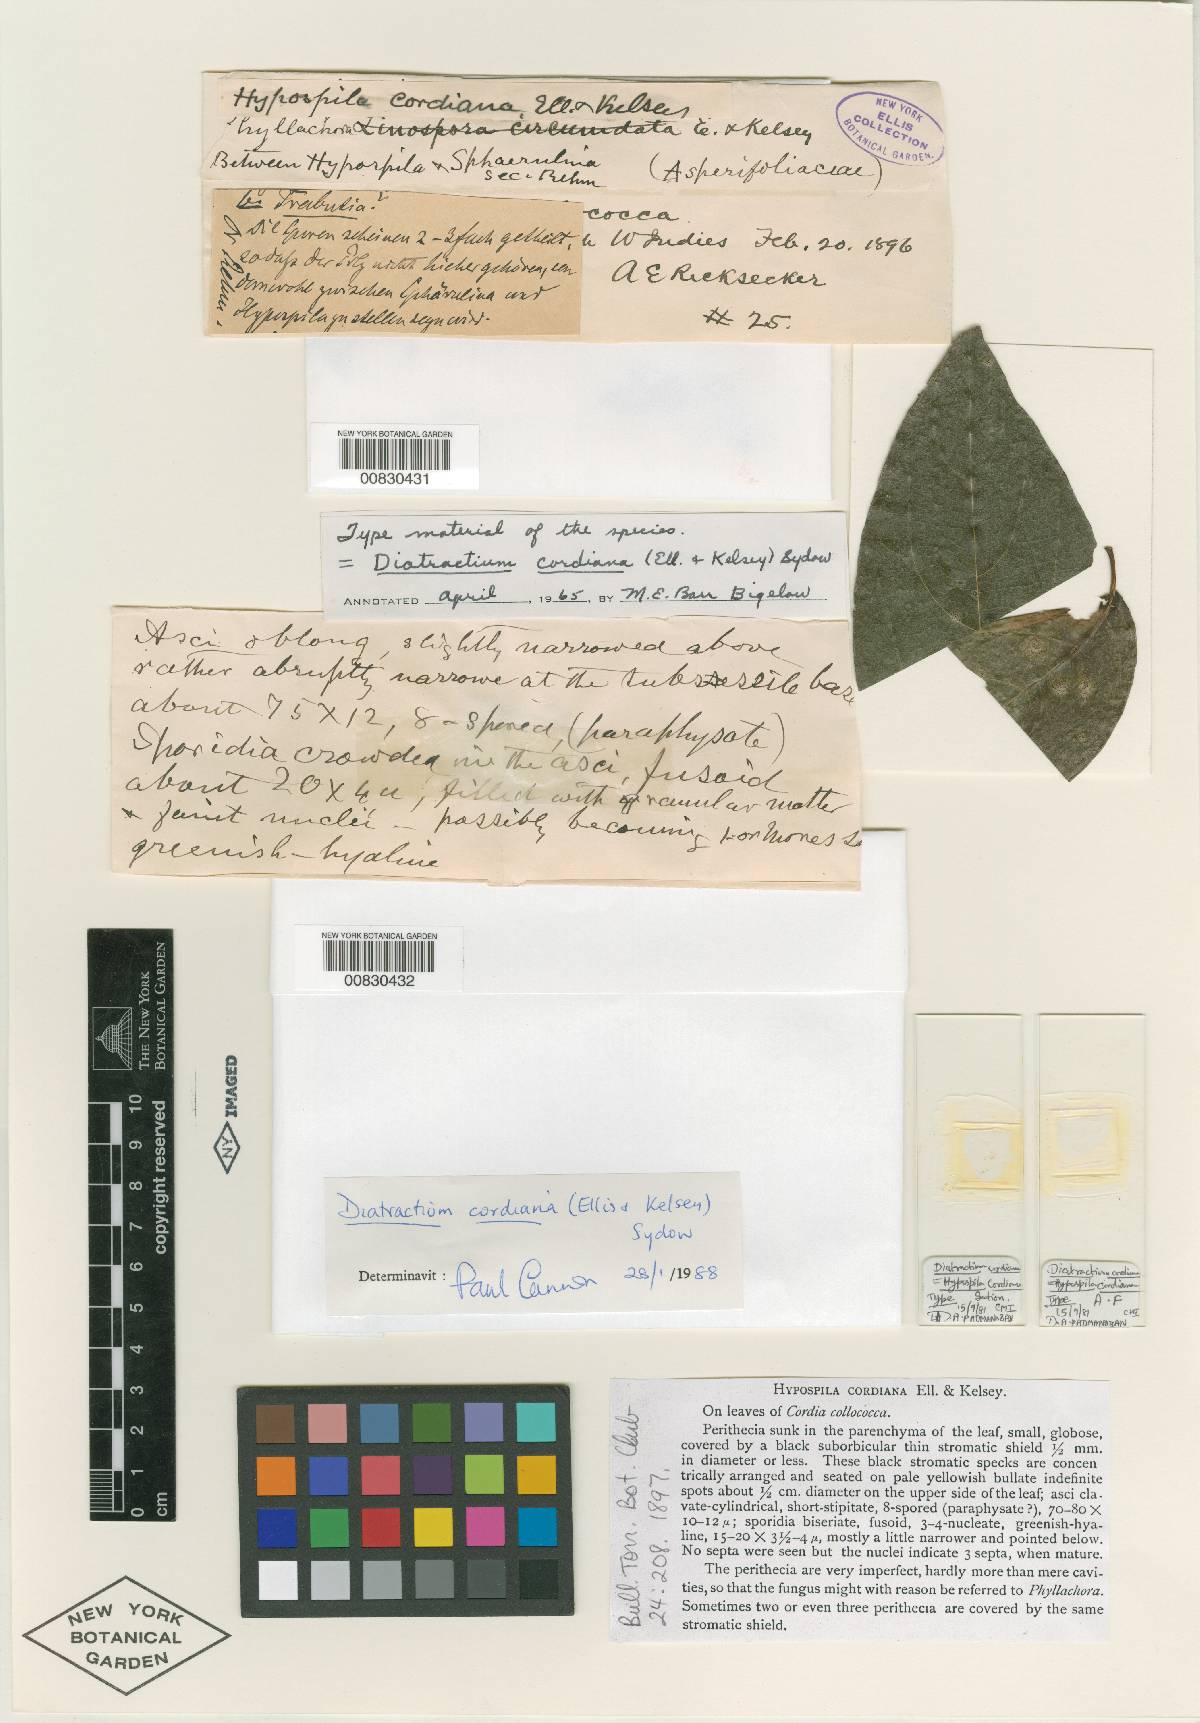 Hypospila cordiana Ell. & Kelsey
Phyllachora Linospora circumdata E. & Kelsey
Between Hypospila & Sphaerulina
sec. Rehm
(Asperifoliaceae)
NEW YORK
ELLIS
COLLECTION
BOTANICAL GARDEN.
Trabutia?
Die Sporen scheinen 2-3fach getheilt,
so dass der Pilz nicht hieher gehören, son
dern wohl zwischen Sphärulina und
Hypospila zu stellen seyn wird.
Dr Rehm.
cocca.
W Indies Feb. 20. 1896
A E Ricksecker
# 25.
NEW YORK BOTANICAL GARDEN
00830431
Type material of the species.
= Diatractium cordiana (Ell. & Kelsey) Sydow
ANNOTATED April, 1965, BY M.E. Barr Bigelow
Asci oblong, slightly narrowed above
rather abruptly narrowe at the subsessile base
about 75 X 12, 8-spored, (paraphysate)
Sporidia crowded in the asci, fusoid
about 20 X 4 u, filled with granular matter
& faint nuclei - possibly becoming
greenish-hyaline
NEW YORK BOTANICAL GARDEN
00830432
Diatractium cordiana (Ellis & Kelsey)
Sydow
Determinavit : Paul Cannon 28/1/1988
THE NEW YORK
BOTANICAL GARDEN
0 1 2 3 4 5 6 7 8 9 10
cm
copyright reserved
NY IMAGED
Diatractium cordiana
= Hypospila Cordiana
Type Section.
15/9/81 CMI
Dr. A. PADMANABAN
Diatractium cordiana
= Hypospila cordiana
Type A.F
15/9/81 CMI
Dr. A. PADMANABAN
Bull. Torr. Bot. Club
24:208. 1897.
HYPOSPILA CORDIANA Ell. & Kelsey.
On leaves of Cordia collococca.
Perithecia sunk in the parenchyma of the leaf, small, globose,
covered by a black suborbicular thin stromatic shield ½ mm.
in diameter or less. These black stromatic specks are concen
trically arranged and seated on pale yellowish bullate indefinite
spots about ½ cm. diameter on the upper side of the leaf; asci cla-
vate-cylindrical, short-stipitate, 8-spored (paraphysate?), 70–80 ×
10–12 μ; sporidia biseriate, fusoid, 3–4-nucleate, greenish-hya-
line, 15–20 × 3½–4 μ, mostly a little narrower and pointed below.
No septa were seen but the nuclei indicate 3 septa, when mature.
The perithecia are very imperfect, hardly more than mere cavi-
ties, so that the fungus might with reason be referred to Phyllachora.
Sometimes two or even three perithecia are covered by the same
stromatic shield.
NEW YORK
BOTANICAL
GARDEN